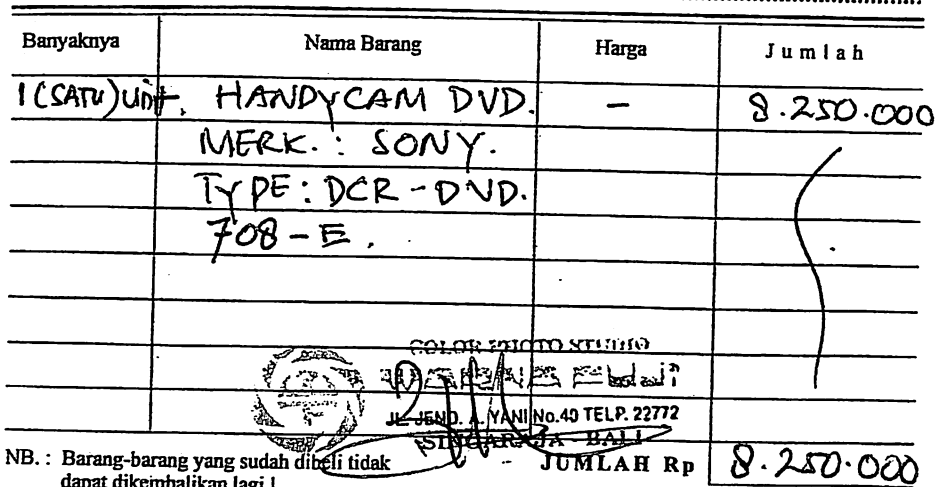 Banyaknya Nama Barang Harga Jumlah
1 (SATU) Unit. HANDYCAM DVD. – 8.250.000
MERK. : SONY.
TYPE : DCR - DVD.
708 - E.
COLOR PHOTO STUDIO
JL. JEND. A. YANI No.40 TELP. 22772
SINGARAJA - BALI
NB. : Barang-barang yang sudah dibeli tidak JUMLAH Rp 8.250.000
dapat dikembalikan lagi !